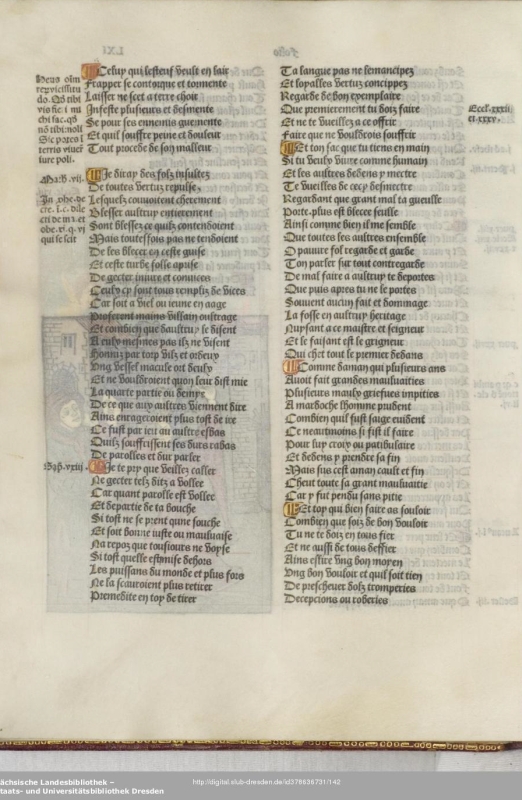 Celuy qui lesteuf veult en lair
Frapper se contourne et tormente
Laisser ne scet a terre choir
Infeste plusieurs et desmente
Se pour ses ennemis guemente
Et quil souffre peine et douleur
Tout procede de son malleur
Je diray des folz insultez
De toutes vertuz repulsez
Lesquelz convoitent cherement
Blesser aultruy entierement
Sont blessez ce quilz contendoient
Mais touteffois pas ne tendoient
De les blecer en ceste guise
Et ceste turbe folle apuise
De gecter iniure et convices
Ceulx cy sont tous rempliz de vices
Car soit a viel ou ieune en aage
Proferent mains villain oultrage
Et combien que daultruy le disent
A eulx mesmes pas ilz ne visent
Honniz par trop vilz et ordeux
Ung vessel macule ort deulx
Et ne vouldroient quon leur dist mie
La quarte partie ou demye
De ce que aux aultres viennent dire
Ains enrageroient plus tost de ire
Ce fust par ieu ou aultre esbas
Quilz souffrissent ses durs rabas
De parolles et dur parler
Je te pry que veillez caller
Ne gecter telz ditz a vollee
Car quant parolle est vollee
Et departie de ta bouche
Si tost ne se prent qune souche
Et soit bonne iuste ou mauluaise
Na repoz que tousiours ne voyse
Si tost quelle est mise dehors
Les puissans du monde et plus fors
Ne la scauroient plus retirer
Premedite en toy de tirer
Ta langue pas ne semancipez
Et lopalles vertuz concippez
Regarde de bon exemplaire
Que premierement tu doiz faire
Et ne te vueillez a ce offrir
Faire que ne vouldrois souffrir
Et ton sac que tu tiens en main
Si tu veulx vivre comme humain
Et les aultres dedens y mectre
Te vueilles de cecy desmectre
Regardant que grant mal ta gueulle
Porte plus est blecee seulle
Ainsi comme bien il me semble
Que toutes les aultres ensemble
O pauure fol regarde et garde
Ton parler sur tout contregarde
De mal faire a aultruy te deportes
Que puis apres tu ne le portes
Souuent aucun fait et dommage
La fosse en aultruy heritage
Nuysant a ce maistre et seigneur
Et le faisant est le grigneur
Qui chet tout le premier dedans
Comme daman qui plusieurs ans
Auoit fait grandes mauluaities
Plusieurs maulx griefues impities
A mardoche lhomme prudent
Combien quil fust saige euident
Ce neantmoins si fist il faire
Pour luy croix ou patibulaire
Et dedens y prendre sa fin
Mais sus cest aman cault et fin
Cheut toute sa grant mauluaitie
Car y fut pendu sans pitie
Et toy qui bien faire as souloir
Combien que soiz de bon vouloir
Tu ne te doiz en tous fier
Et ne aussi de tous deffier
Ains eslire ung bon moyen
Ung bon vouloir et quil soit tien
De prescheuer dolz tromperies
Decepcions ou roberies
Eccl. xxxii.
et xxxv.
Sächsische Landesbibliothek –
Staats- und Universitätsbibliothek Dresden
http://digital.slub-dresden.de/id378636731/142